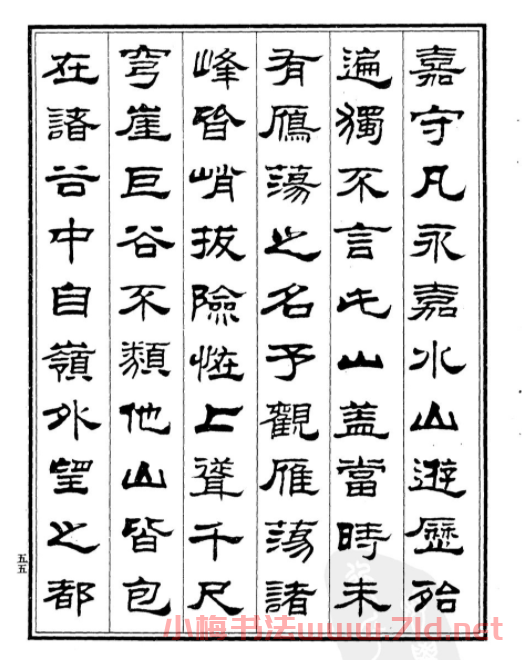 嘉守凡永嘉水山遊歷殆
遍獨不言此山盖當時未
有鴈蕩之名予觀雁蕩諸
峰皆峭拔險恠上聳千尺
穹崖巨谷不類他山皆包
在諸谷中自嶺外望之都
五五
小梅书法www.7ld.net